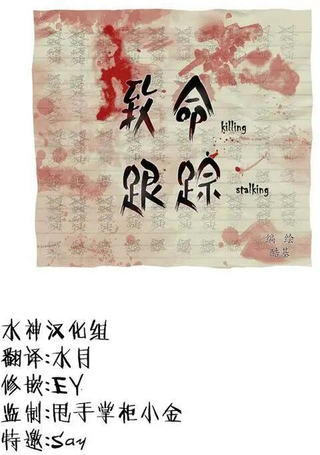 致命
killing
跟踪
stalking
编绘
酷基
水神汉化组
翻译:水目
修嵌:EY
监制:甩手掌柜小金
特邀:Say